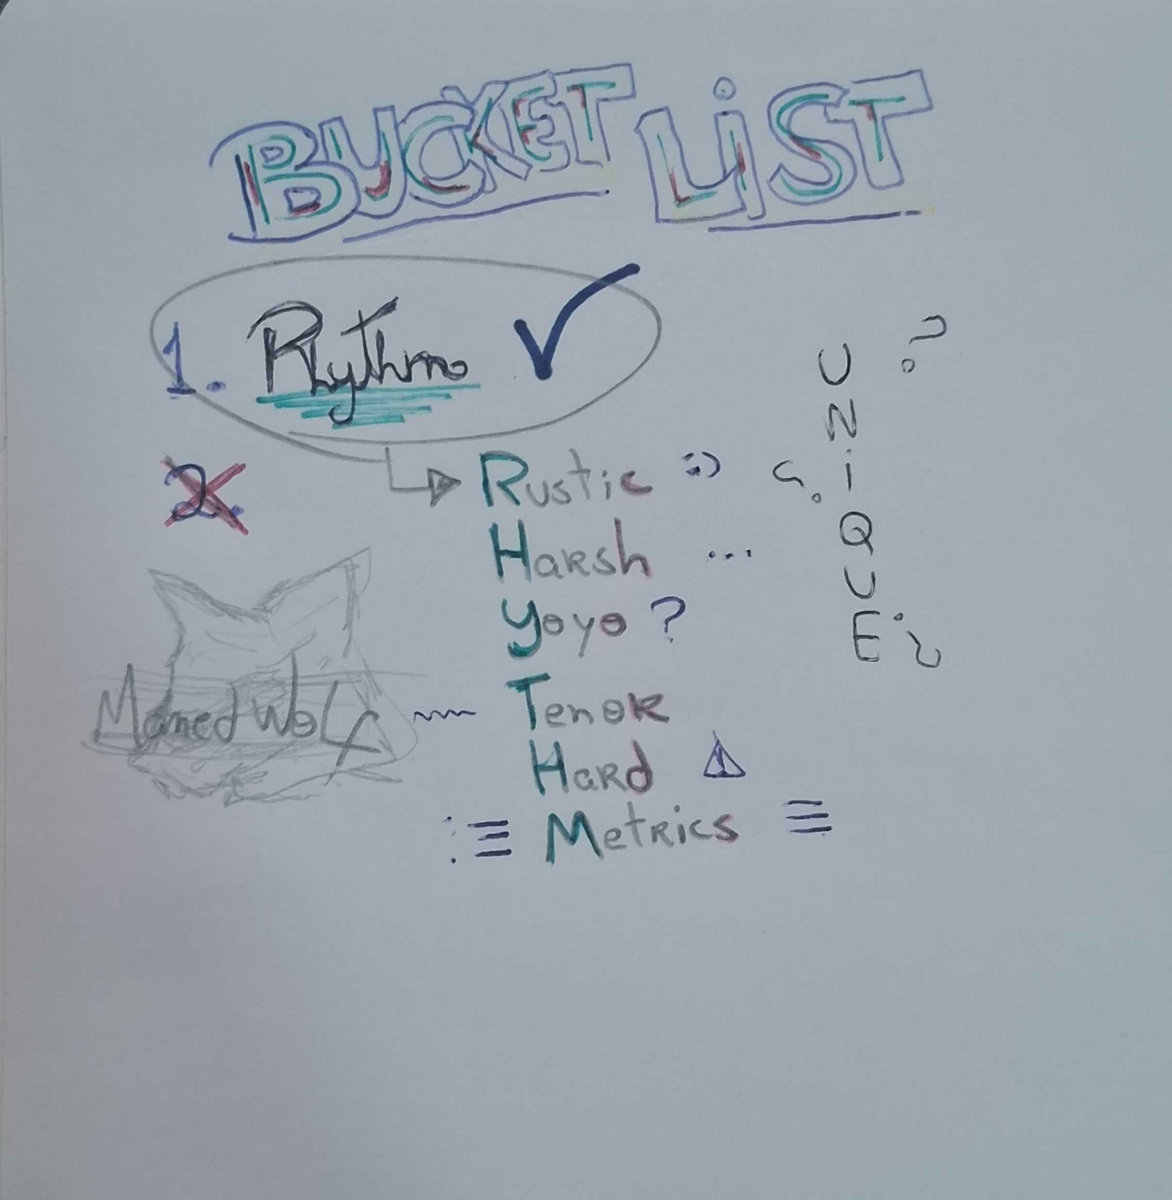 BUCKET LiST
1. Rhythm ✓
2.
Rustic :)
Harsh ...
Yoyo ?
Maned Wolf
Tenor
Hard
Metrics
UNiQUE